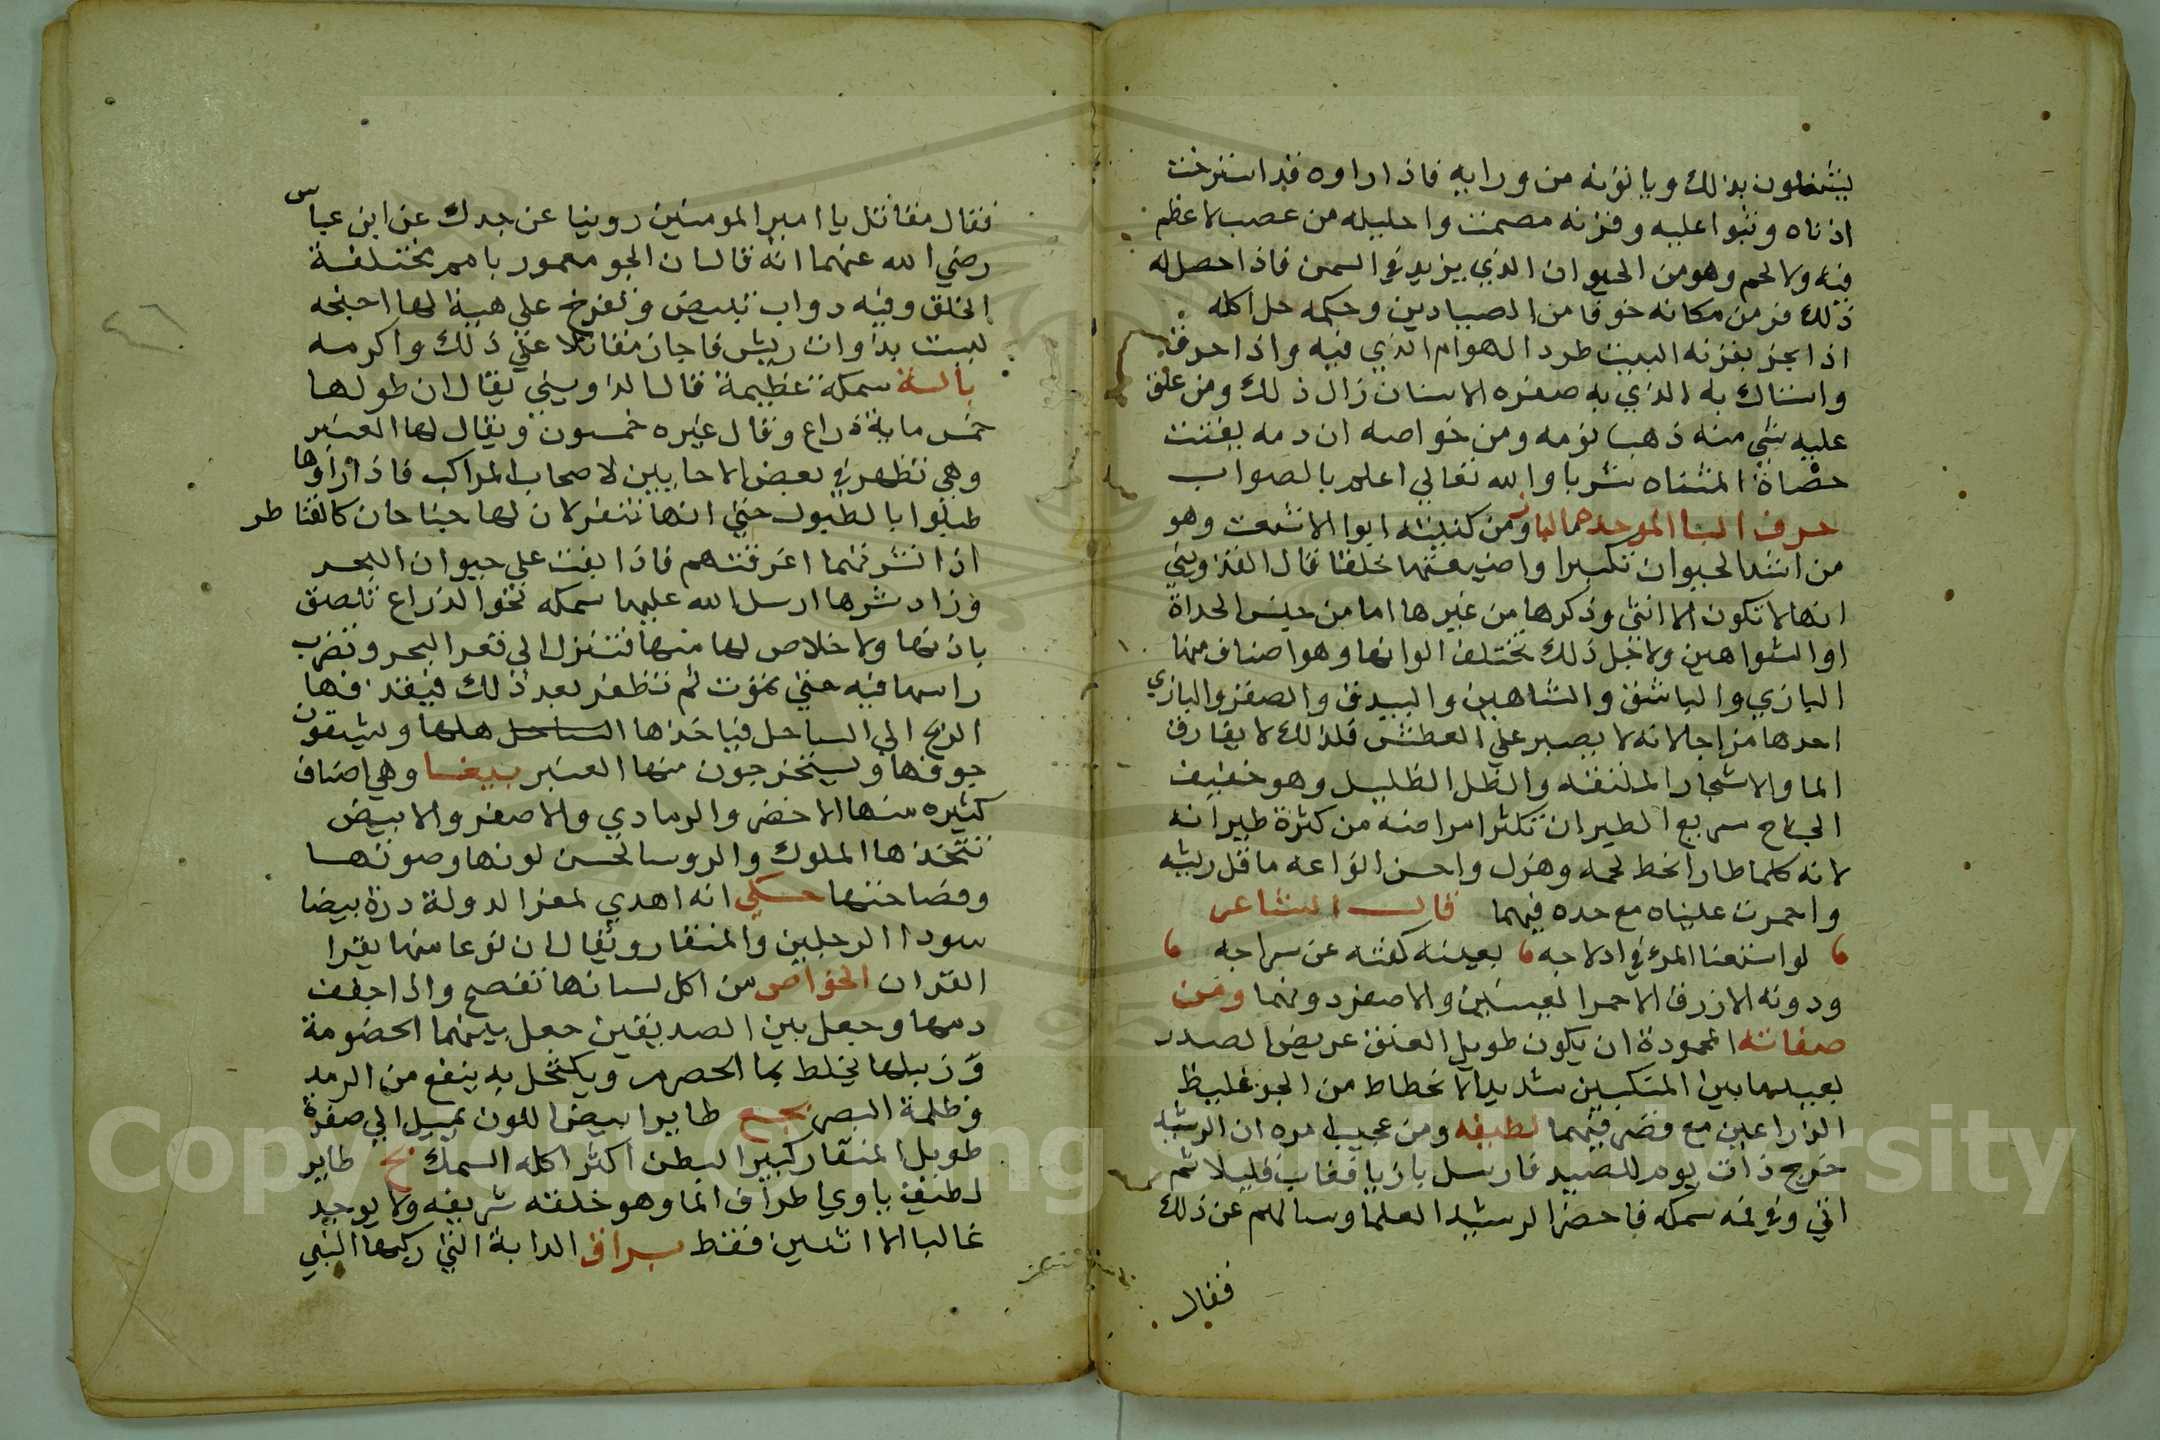 يشتغلون بذلك وياتونه من ورايه فاذا راوه قد استرخت
اذناه وثبوا عليه وقرنه مصمت واحليله من عصب لا عظم
فيه ولا لحم وهو من الحيوان الذي يزيد في السمن فاذا حصل له
ذلك فر من مكانه خوفا من الصيادين وحكمه حل اكله
اذا بخر بقرنه البيت طرد الهوام الذي فيه واذا احرق
واستاك به الذي به صفره الاسنان زال ذلك ومن علق
عليه شي منه ذهب نومه ومن خواصه ان دمه يفتت
حصاة المثناه شربا والله تعالي اعلم بالصواب
حرف البا الموحده باز ومن كنيته ابوا الاشعث وهو
من اشد الحيوان تكبرا واضيقها خلقا قال القزويني
انها لا تكون الا انثي وذكرها من غيرها اما من جنس الحداة
او الشواهين ولاجل ذلك تختلف الوانها وهو اصناف منها
البازي والباشق والشاهين والبيدق والصقر والبازي
احدها مزاجا لانه لا يصبر علي العطش فلذلك لا يفارق
الما والاشجار الملتفه والظل الظليل وهو خفيف
الجناح سريع الطيران تكثر امراضه من كثرة طيرانه
لانه كلما طار انحط لحمه وهزل واحسن انواعه ما قل ريشه
واحمرت عليناه مع حده فيهما قال الشاعر
لو استضا المرء في ادلاجه بعينه كفته عن سراجه
ودونه الازرق الاحمر العينين والاصفر دونهما ومن
صفاته المحمودة ان يكون طويل العنق عريض الصدر
بعيد ما بين المنكبين شديد الانخطاط من الجو غليظ
الذراعين مع قصر فيهما لطيفه ومن عجيب امره ان الرشيد
خرج ذات يوم للصيد فارسل بازيا فغاب قليلا ثم
اتي وفي فمه سمكه فاحضر الرشيد العلما وسالهم عن ذلك
فقال
فقال مقاتل يا امير المومنين روينا عن جدك عن ابن عباس
رضي الله عنهما انه قال ان الجو معمور بامم مختلفة
الخلق وفيه دواب تبيض وتفرخ علي هيئة لها اجنحه
ليست بذوات ريش فاجاز مقاتلا علي ذلك واكرمه
بالسة سمكة عظيمة قال القزويني يقال ان طولها
خمس ماية ذراع وقال غيره خمسون ويقال لها العنبر
وهي تظهر في بعض الاحايين لاصحاب المراكب فاذا راوها
طبلوا بالطبول حتي انها تنفر لان لها جناحان كالقناطر
اذا نشرتهما اغرقتهم فاذا بغت علي حيوان البحر
وزاد شرها ارسل الله عليها سمكه نحو الذراع تلصق
باذنها ولا خلاص لها منها فتنزل الي قعر البحر وتضرب
راسها فيه حتي تموت ثم تظفر بعد ذلك فيقذفها
الريح الي الساحل فياخذها الساحل هلها ويشقون
جوفها ويستخرجون منها العنبر ببغا وهي اصناف
كثيره منها الاخضر والرمادي والاصفر والابيض
تتخذها الملوك والروسا لحسن لونها وصوتها
وفصاحتها حكي انه اهدي لمعز الدولة درة بيضا
سودا الرجلين والمنقار ويقال ان نوعا منها يقرا
القران الخواص من اكل لسانها تفصح واذا جفف
دمها وجعل بين الصديقين جعل بينهما الخصومة
وزبلها يخلط بما الحصرم ويكتحل به ينفع من الرمد
وظلمة البصر بجع طاير ابيض اللون يميل الي صفرة
طويل المنقار كبير البطن اكثر اكله السمك بج طاير
لطيف ياوي اطراف الما وهو خلقته شريفه ولا يوجد
غالبا الا اثنين فقط براق الدابة التي ركبها النبي